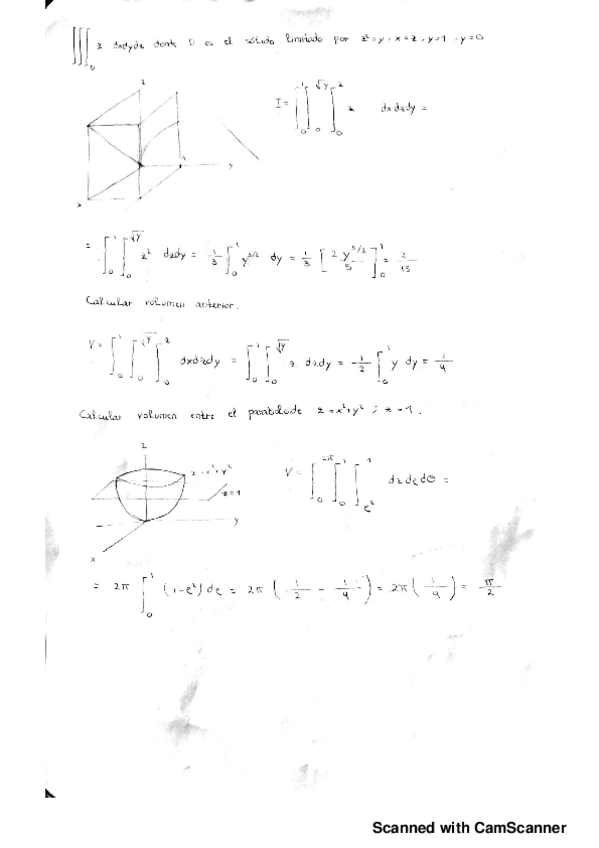 ∭_D z dxdydz donde D es el sólido limitado por z²=y, x=z, y=1, y=0
z
y
x
1
I = ∫₀¹ ∫₀^√y ∫₀^z z dxdzdy =
= ∫₀¹ ∫₀^√y z² dzdy = 1/3 ∫₀¹ y^(3/2) dy = 1/3 [2 y^(5/2)/5]₀¹ = 2/15
Calcular volumen anterior.
V = ∫₀¹ ∫₀^√y ∫₀^z dxdzdy = ∫₀¹ ∫₀^√y z dzdy = 1/2 ∫₀¹ y dy = 1/4
Calcular volumen entre el paraboloide z = x²+y² ; z = 1.
z
z = x²+y²
z=1
y
x
V = ∫₀^2π ∫₀¹ ∫_e²^1 dzdedθ =
= 2π ∫₀¹ (1-e²)de = 2π (1/2 - 1/4) = 2π (1/4) = π/2
Scanned with CamScanner